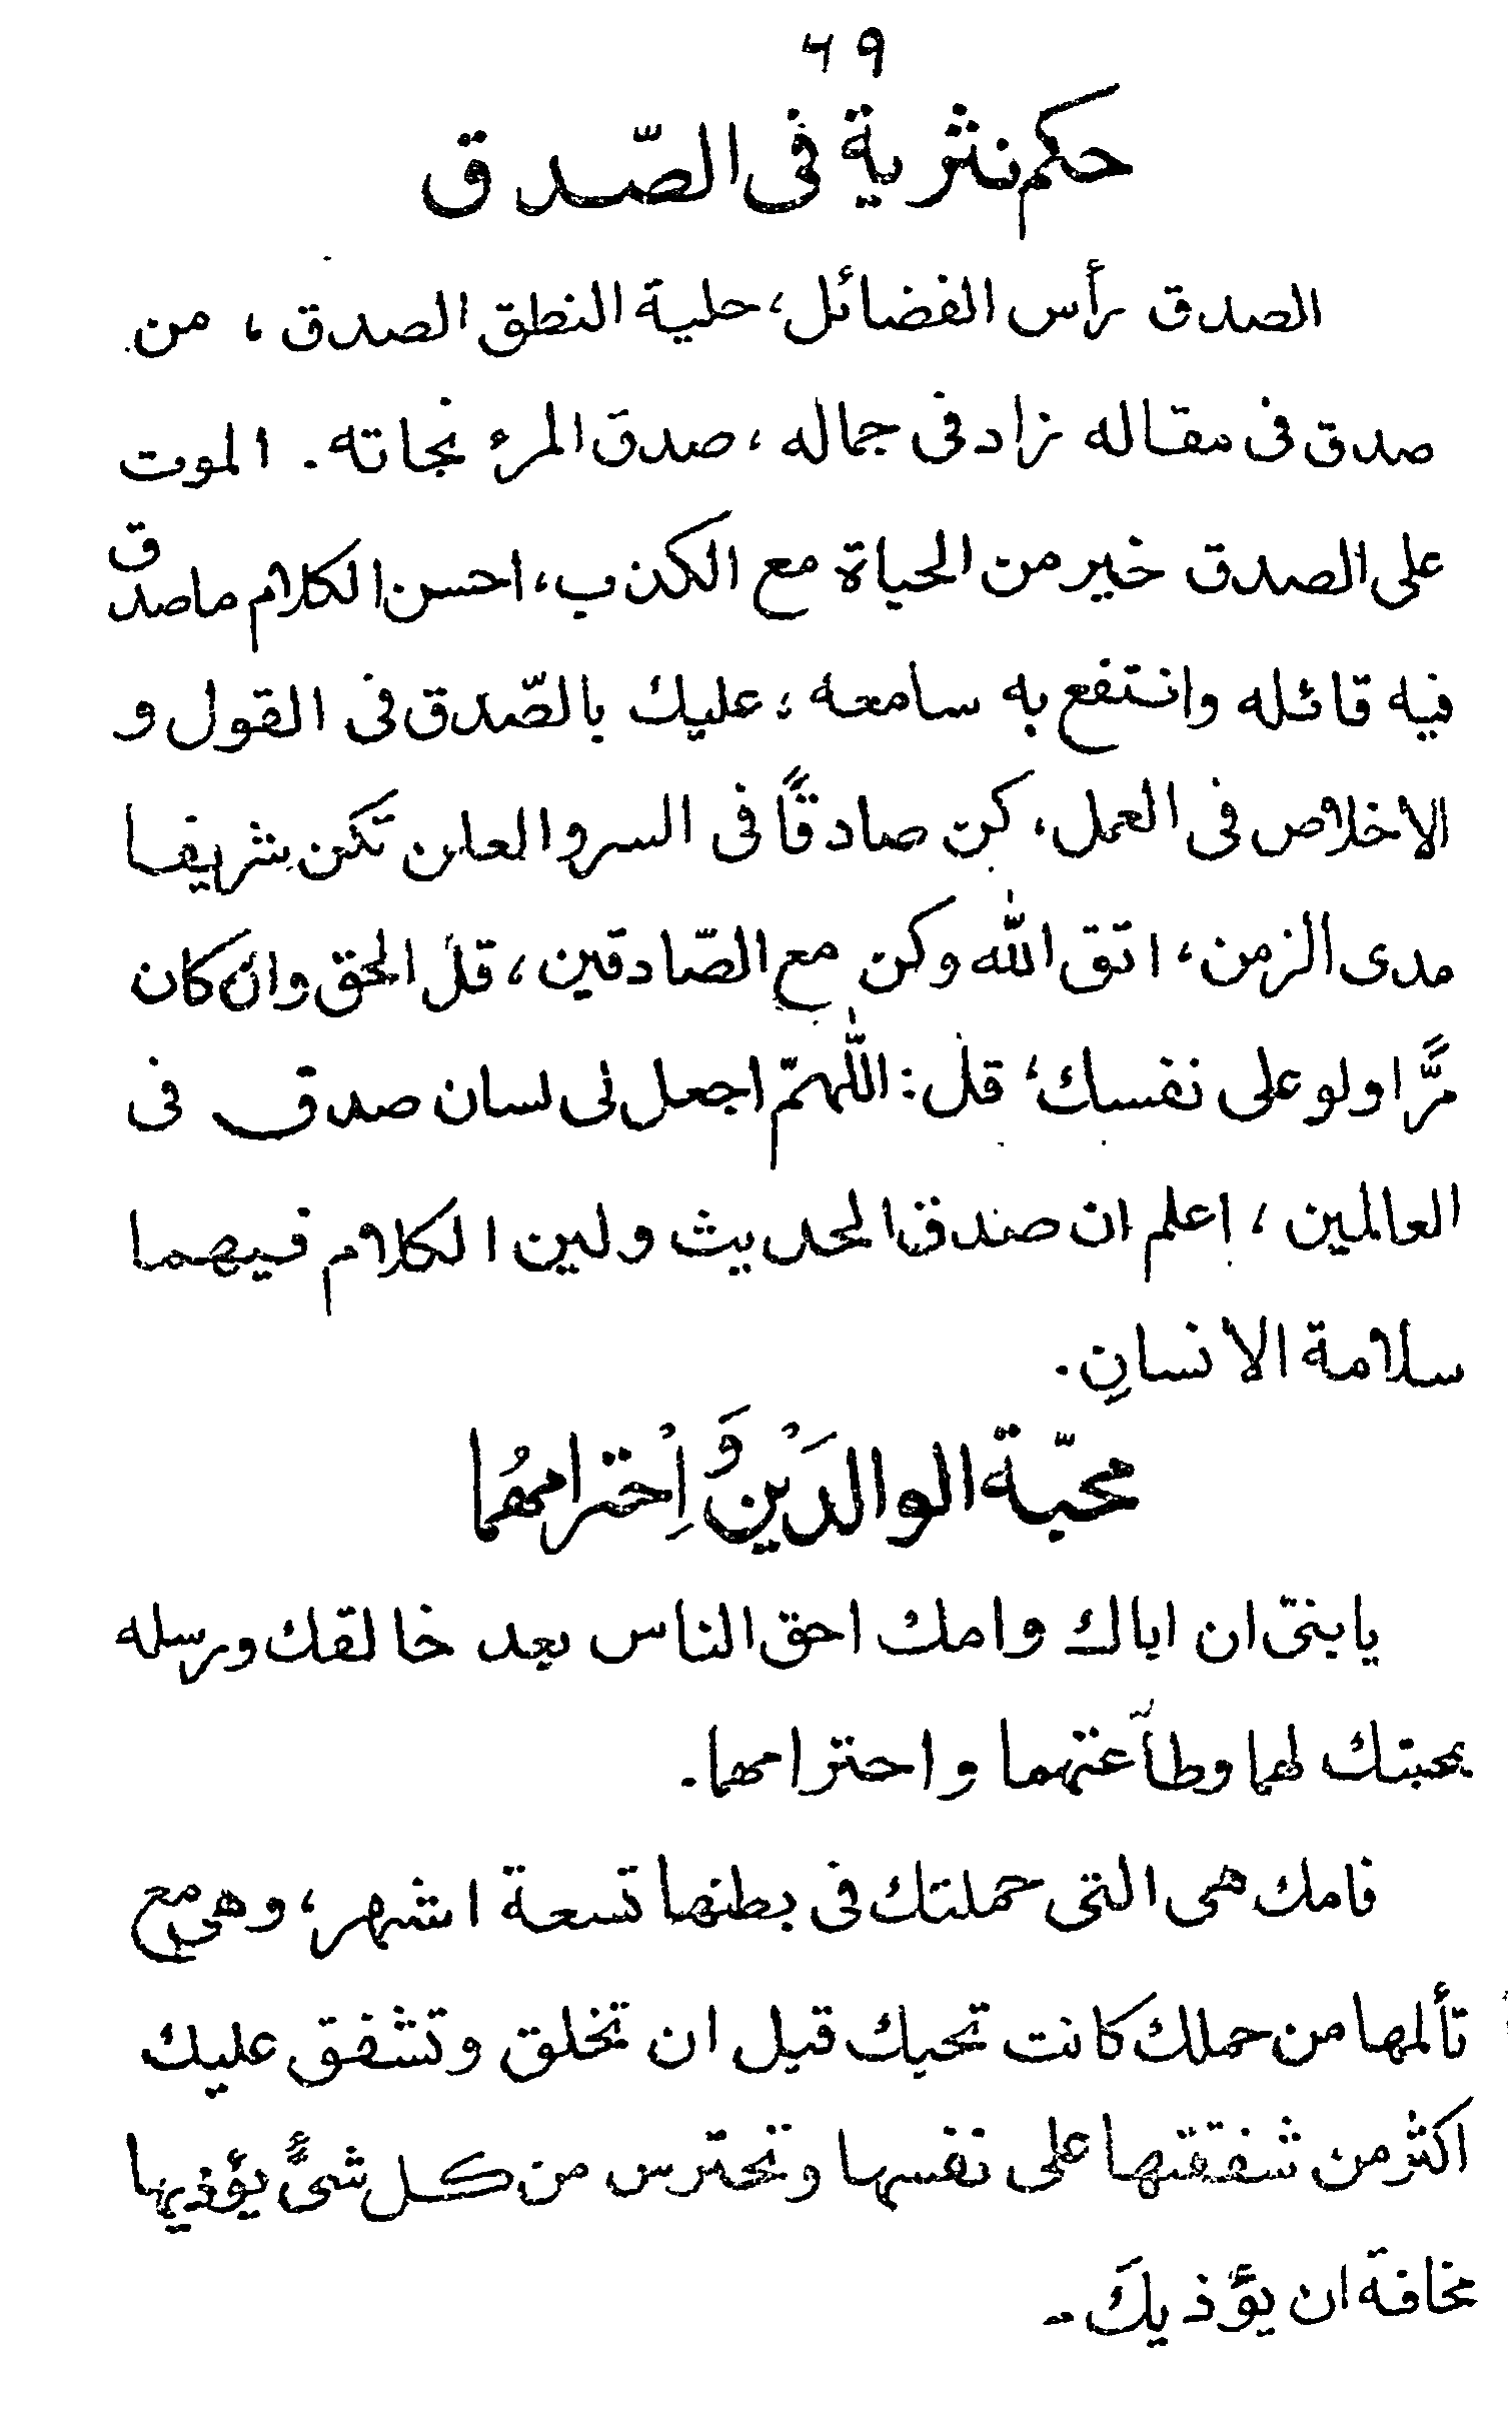 ۶۹
حكم نثرية فى الصّدق
الصدق رأس الفضائل، حلية النطق الصدق، من
صدق فى مقاله زاد فى جماله، صدق المرء نجاته. الموت
على الصدق خير من الحياة مع الكذب، احسن الكلام ما صدق
فيه قائله وانتفع به سامعه، عليك بالصّدق فى القول و
الاخلاص فى العمل، كن صادقًا فى السر والعلن تكن شريفا
مدى الزمن، اتق الله وكن مع الصّادقين، قل الحق وان كان
مرًّا ولو على نفسك، قل: اللّٰهمّ اجعل لى لسان صدق فى
العالمين، اعلم ان صدق الحديث ولين الكلام فيهما
سلامة الانسانِ.
محبّة الوالدَيْن وَ اِحْترامهُما
يابنىّ ان اباك وامك احق الناس بعد خالقك ورسله
بمحبتك لهما وطاعتهما واحترامهما.
فامك هى التى حملتك فى بطنها تسعة اشهر، وهى مع
تألمها من حملك كانت تحبك قبل ان تخلق وتشفق عليك
اكثر من شفقتها على نفسها وتحترس من كل شىءٍ يؤذيها
مخافة ان يؤذيكَ۔